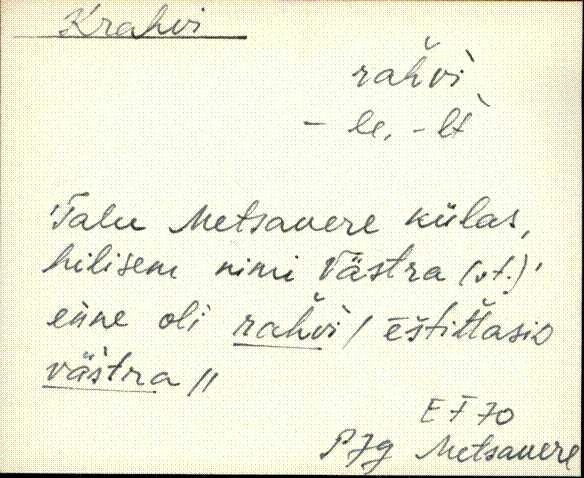 Krahvi
rah̆vì
- le, - lt̀
'Talu Metsavere külas,
hilisem nimi Västra (vt.)'
eńne oli rah̆vì / ēštit̆tasiᴅ
väs̀tra //
EF 70
PJg Metsavere